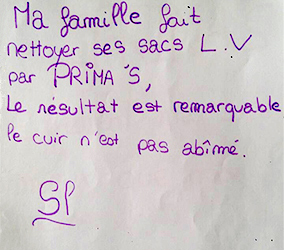 Ma famille fait
nettoyer ses sacs L.V
par PRIMA'S,
Le résultat est remarquable
le cuir n'est pas abîmé.
SP